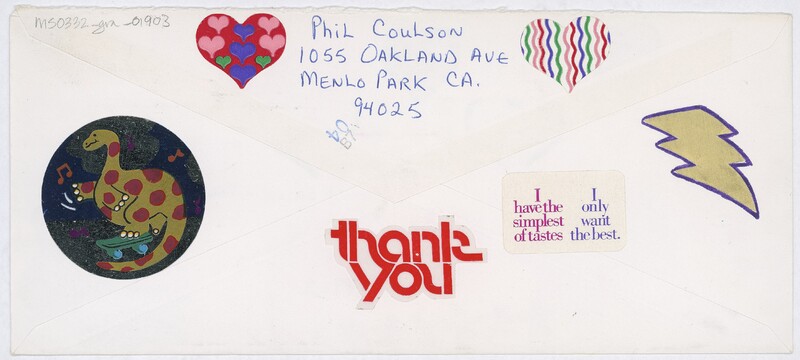 MS0332_gra_01903
Phil Coulson
1055 Oakland Ave
Menlo Park CA.
94025
thank
you
I
have the
simplest
of tastes
I
only
want
the best.